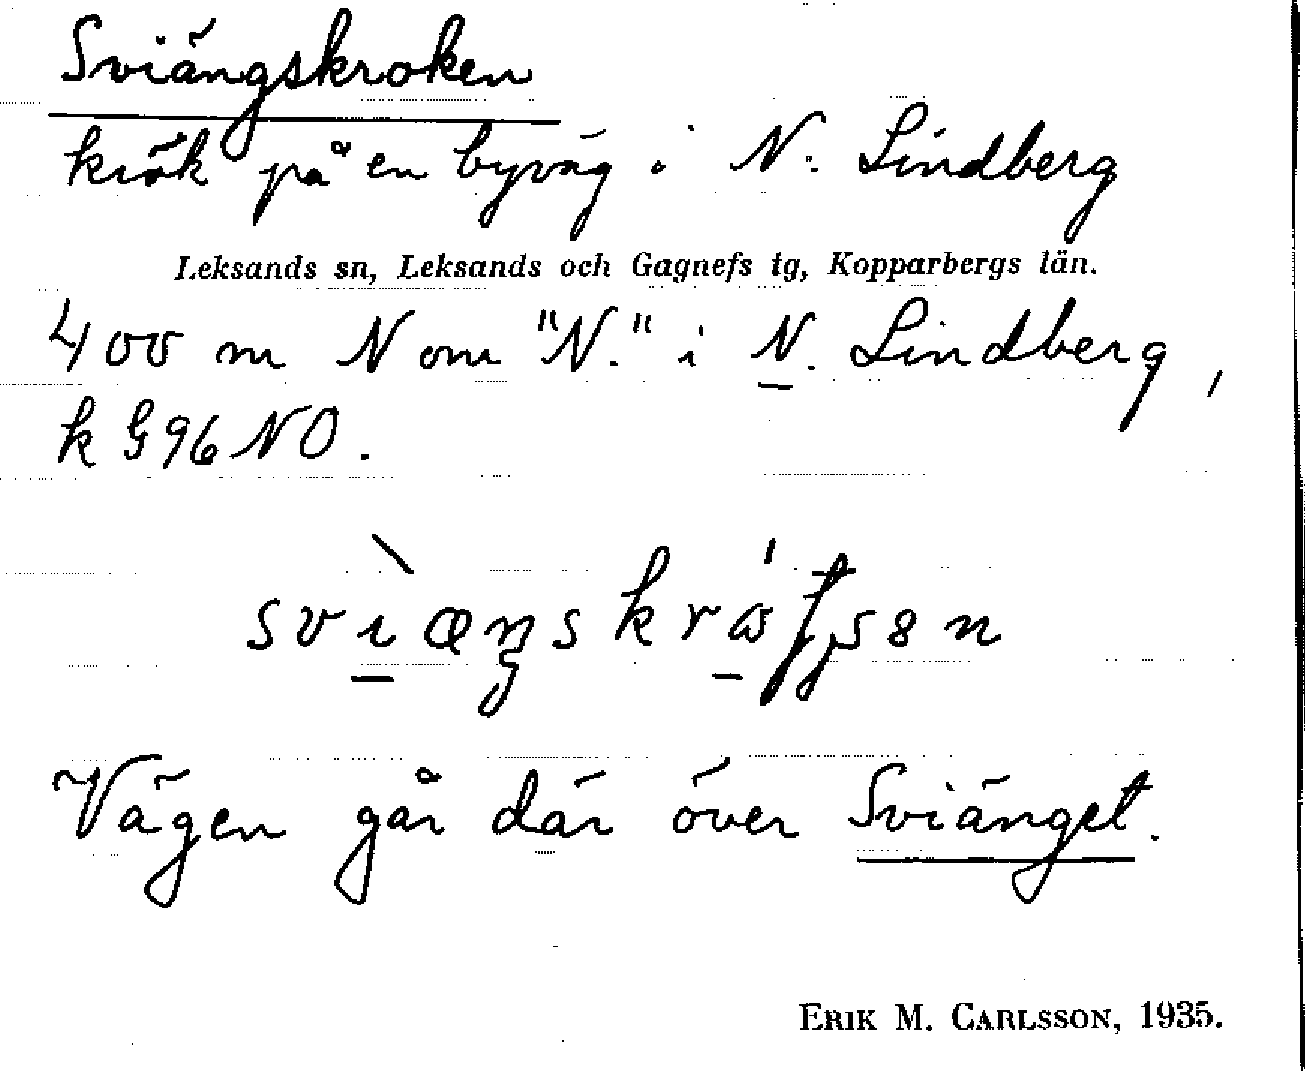 Sviängskroken
krök på en byväg i N. Lindberg
Leksands sn, Leksands och Gagnefs tg, Kopparbergs län.
400 m N om "N." i N. Lindberg,
k G96NO.
Vägen går där över Sviänget.
ERIK M. CARLSSON, 1935.